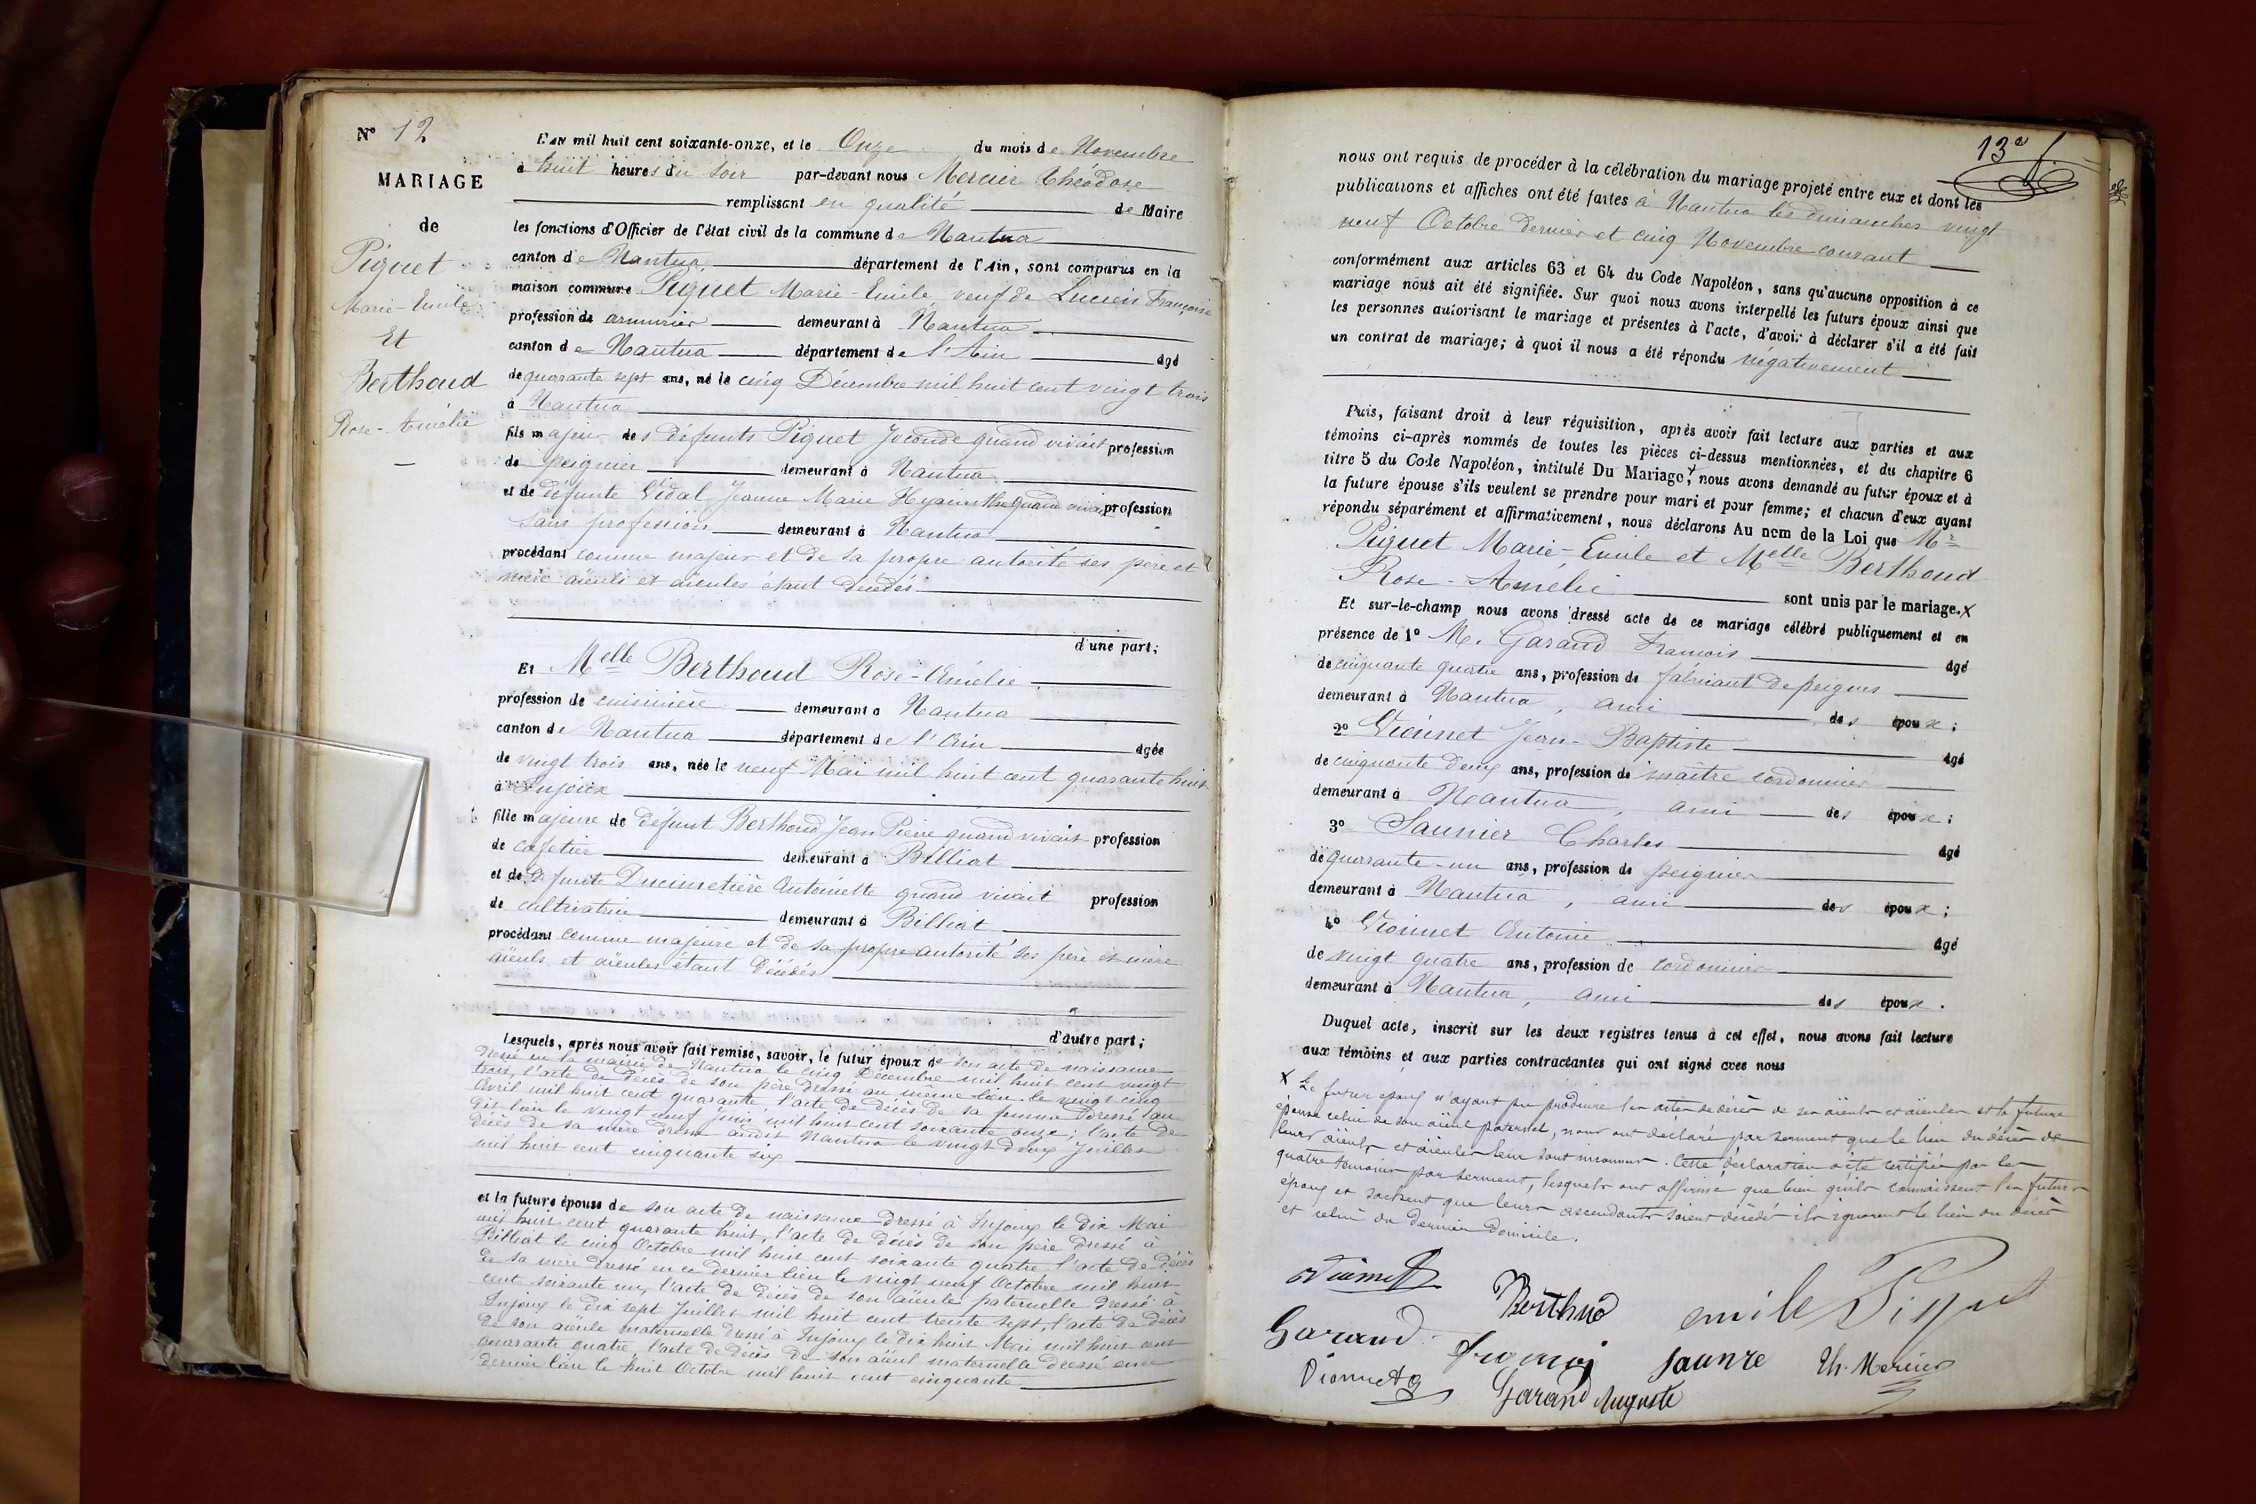 N° 12
MARIAGE
de
Piquet
Marie-Emile
Et
Berthoud
Rose-Amélie
L'AN mil huit cent soixante-onze, et le Onze du mois de Novembre
à huit heures du soir par-devant nous Mercier Théodose
remplissant en qualité de Maire
les fonctions d'Officier de l'état civil de la commune de Nantua
canton de Nantua département de l'Ain, sont comparus en la
maison commune Piquet Marie-Emile, veuf de Lucien Françoise
profession de armurier demeurant à Nantua
canton de Nantua département de l'Ain âgé
de quarante sept ans, né le cinq Décembre mil huit cent vingt trois
à Nantua
fils majeur des défunts Piquet Joconde quand vivait profession
de peignier demeurant à Nantua
et de défunte Vidal Jeanne Marie Hyacinthe quand vivait profession
Sans profession demeurant à Nantua
procédant comme majeur et de sa propre autorité ses père et
mère aïeuls et aïeules étant décédés
d'une part;
Et Melle Berthoud Rose-Amélie
profession de cuisinière demeurant à Nantua
canton de Nantua département de l'Ain âgée
de vingt trois ans, née le neuf Mai mil huit cent quarante huit
à Injoux
fille majeure de défunt Berthoud Jean Pierre quand vivait profession
de cafetier demeurant à Billiat
et de défunte Ducimetière Antoinette quand vivait profession
de cultivatrice demeurant à Billiat
procédant comme majeure et de sa propre autorité ses père et mère
aïeuls et aïeules étant décédés
d'autre part;
Lesquels, après nous avoir fait remise, savoir, le futur époux de son acte de naissance
dressé en la mairie de Nantua le cinq Décembre mil huit cent vingt
trois, l'acte de décès de son père dressé au même lieu le vingt cinq
Avril mil huit cent quarante l'acte de décès de sa femme dressé au
dit lieu le vingt neuf juin mil huit cent soixante onze; l'acte de
décès de sa mère dressé audit Nantua le vingt deux Juillet
mil huit cent cinquante six
et la future épouse de son acte de naissance dressé à Injoux le dix Mai
mil huit cent quarante huit, l'acte de décès de son père dressé à
Billiat le cinq Octobre mil huit cent soixante quatre l'acte de décès
de sa mère dressé en ce dernier lieu le vingt neuf Octobre mil huit
cent soixante un, l'acte de décès de son aïeule paternelle dressé à
Injoux le dix sept Juillet mil huit cent trente sept, l'acte de décès
de son aïeule maternelle dressé à Injoux le dix huit Mai mil huit cent
quarante quatre, l'acte de décès de son aïeul maternelle dressé en ce
dernier lieu le huit Octobre mil huit cent cinquante
13e
nous ont requis de procéder à la célébration du mariage projeté entre eux et dont les
publications et affiches ont été faites à Nantua les dimanches vingt
neuf Octobre dernier et cinq Novembre courant
conformément aux articles 63 et 64 du Code Napoléon, sans qu'aucune opposition à ce
mariage nous ait été signifiée. Sur quoi nous avons interpellé les futurs époux ainsi que
les personnes autorisant le mariage et présentes à l'acte, d'avoir à déclarer s'il a été fait
un contrat de mariage; à quoi il nous a été répondu négativement
Puis, faisant droit à leur réquisition, après avoir fait lecture aux parties et aux
témoins ci-après nommés de toutes les pièces ci-dessus mentionnées, et du chapitre 6
titre 5 du Code Napoléon, intitulé Du Mariage, nous avons demandé au futur époux et à
la future épouse s'ils veulent se prendre pour mari et pour femme; et chacun d'eux ayant
répondu séparément et affirmativement, nous déclarons Au nom de la Loi que Mr
Piquet Marie-Emile et Melle Berthoud
Rose-Amélie sont unis par le mariage. X
Et sur-le-champ nous avons dressé acte de ce mariage célébré publiquement et en
présence de 1° M. Garand François âgé
de cinquante quatre ans, profession de fabricant de peignes
demeurant à Nantua, ami des époux;
2° Vionnet Jean-Baptiste âgé
de cinquante deux ans, profession de maître cordonnier
demeurant à Nantua, ami des époux;
3° Saunier Charles âgé
de quarante-un ans, profession de peignier
demeurant à Nantua, ami des époux;
4° Vionnet Antoine âgé
de vingt quatre ans, profession de cordonnier
demeurant à Nantua, ami des époux.
Duquel acte, inscrit sur les deux registres tenus à cet effet, nous avons fait lecture
aux témoins et aux parties contractantes qui ont signé avec nous
X Le futur époux n'ayant pu produire les actes de décès de ses aïeuls et aïeules et la future
épouse celui de son aïeul paternel, nous ont déclaré par serment que le lieu du décès de
leurs aïeuls et aïeules leur sont inconnus. Cette déclaration a été certifiée par les
quatre témoins par serment, lesquels ont affirmé que bien qu'ils connaissent les futurs
époux et sachent que leurs ascendants soient décédés ils ignorent le lieu du décès
et celui du dernier domicile.
Vionnet
Berthud
emile Piquet
Garand
françoi
Saunre
Th. Mercier
Vionnet a
Garand Auguste